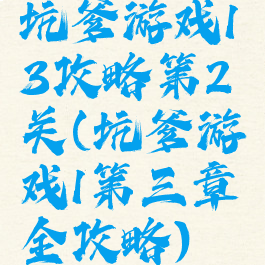 坑爹游戏1
3攻略第2
关(坑爹游
戏1第三章
全攻略)